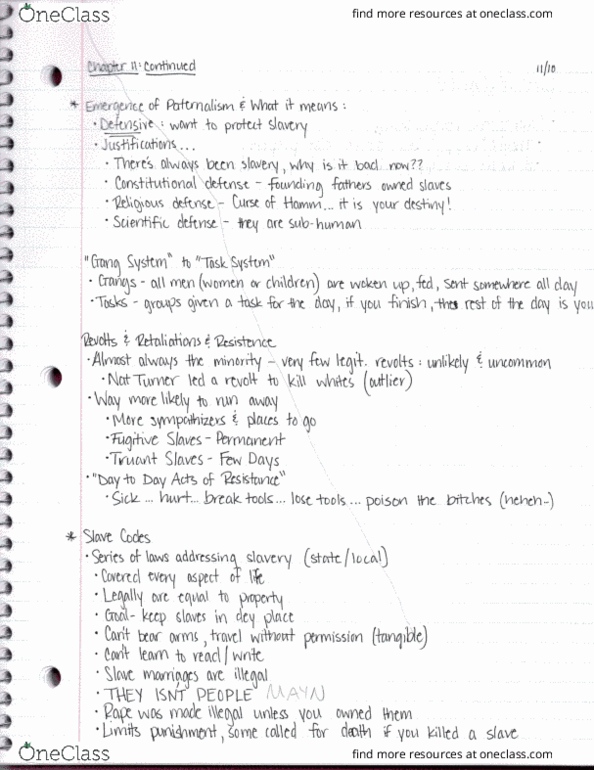 OneClass
find more resources at oneclass.com
Chapter 11: Continued
11/10
* Emergence of Paternalism & What it means:
• Defensive: want to protect slavery
• Justifications...
• There's always been slavery, why is it bad now??
• Constitutional defense - founding fathers owned slaves
• Religious defense - Curse of Hamm... it is your destiny!
• Scientific defense - they are sub-human
"Gang System" to "Task System"
• Gangs - all men (women or children) are woken up, fed, sent somewhere all day
• Tasks - groups given a task for the day, if you finish, the rest of the day is you
Revolts & Retaliations & Resistance
• Almost always the minority - very few legit. revolts: unlikely & uncommon
• Nat Turner led a revolt to kill whites (outlier)
• Way more likely to run away
• More sympathizers & places to go
• Fugitive Slaves - Permanent
• Truant Slaves - Few Days
• "Day to Day Acts of Resistance"
• Sick... hurt... break tools... lose tools... poison the bitches (heheh~)
* Slave Codes
• Series of laws addressing slavery (state/local)
• Covered every aspect of life
• Legally are equal to property
• Goal- keep slaves in dey place
• Can't bear arms, travel without permission (tangible)
• Can't learn to read/write
• Slave marriages are illegal
• THEY ISNT PEOPLE MAYN
• Rape was made illegal unless you owned them
• Limits punishment, some called for death if you killed a slave
OneClass
find more resources at oneclass.com